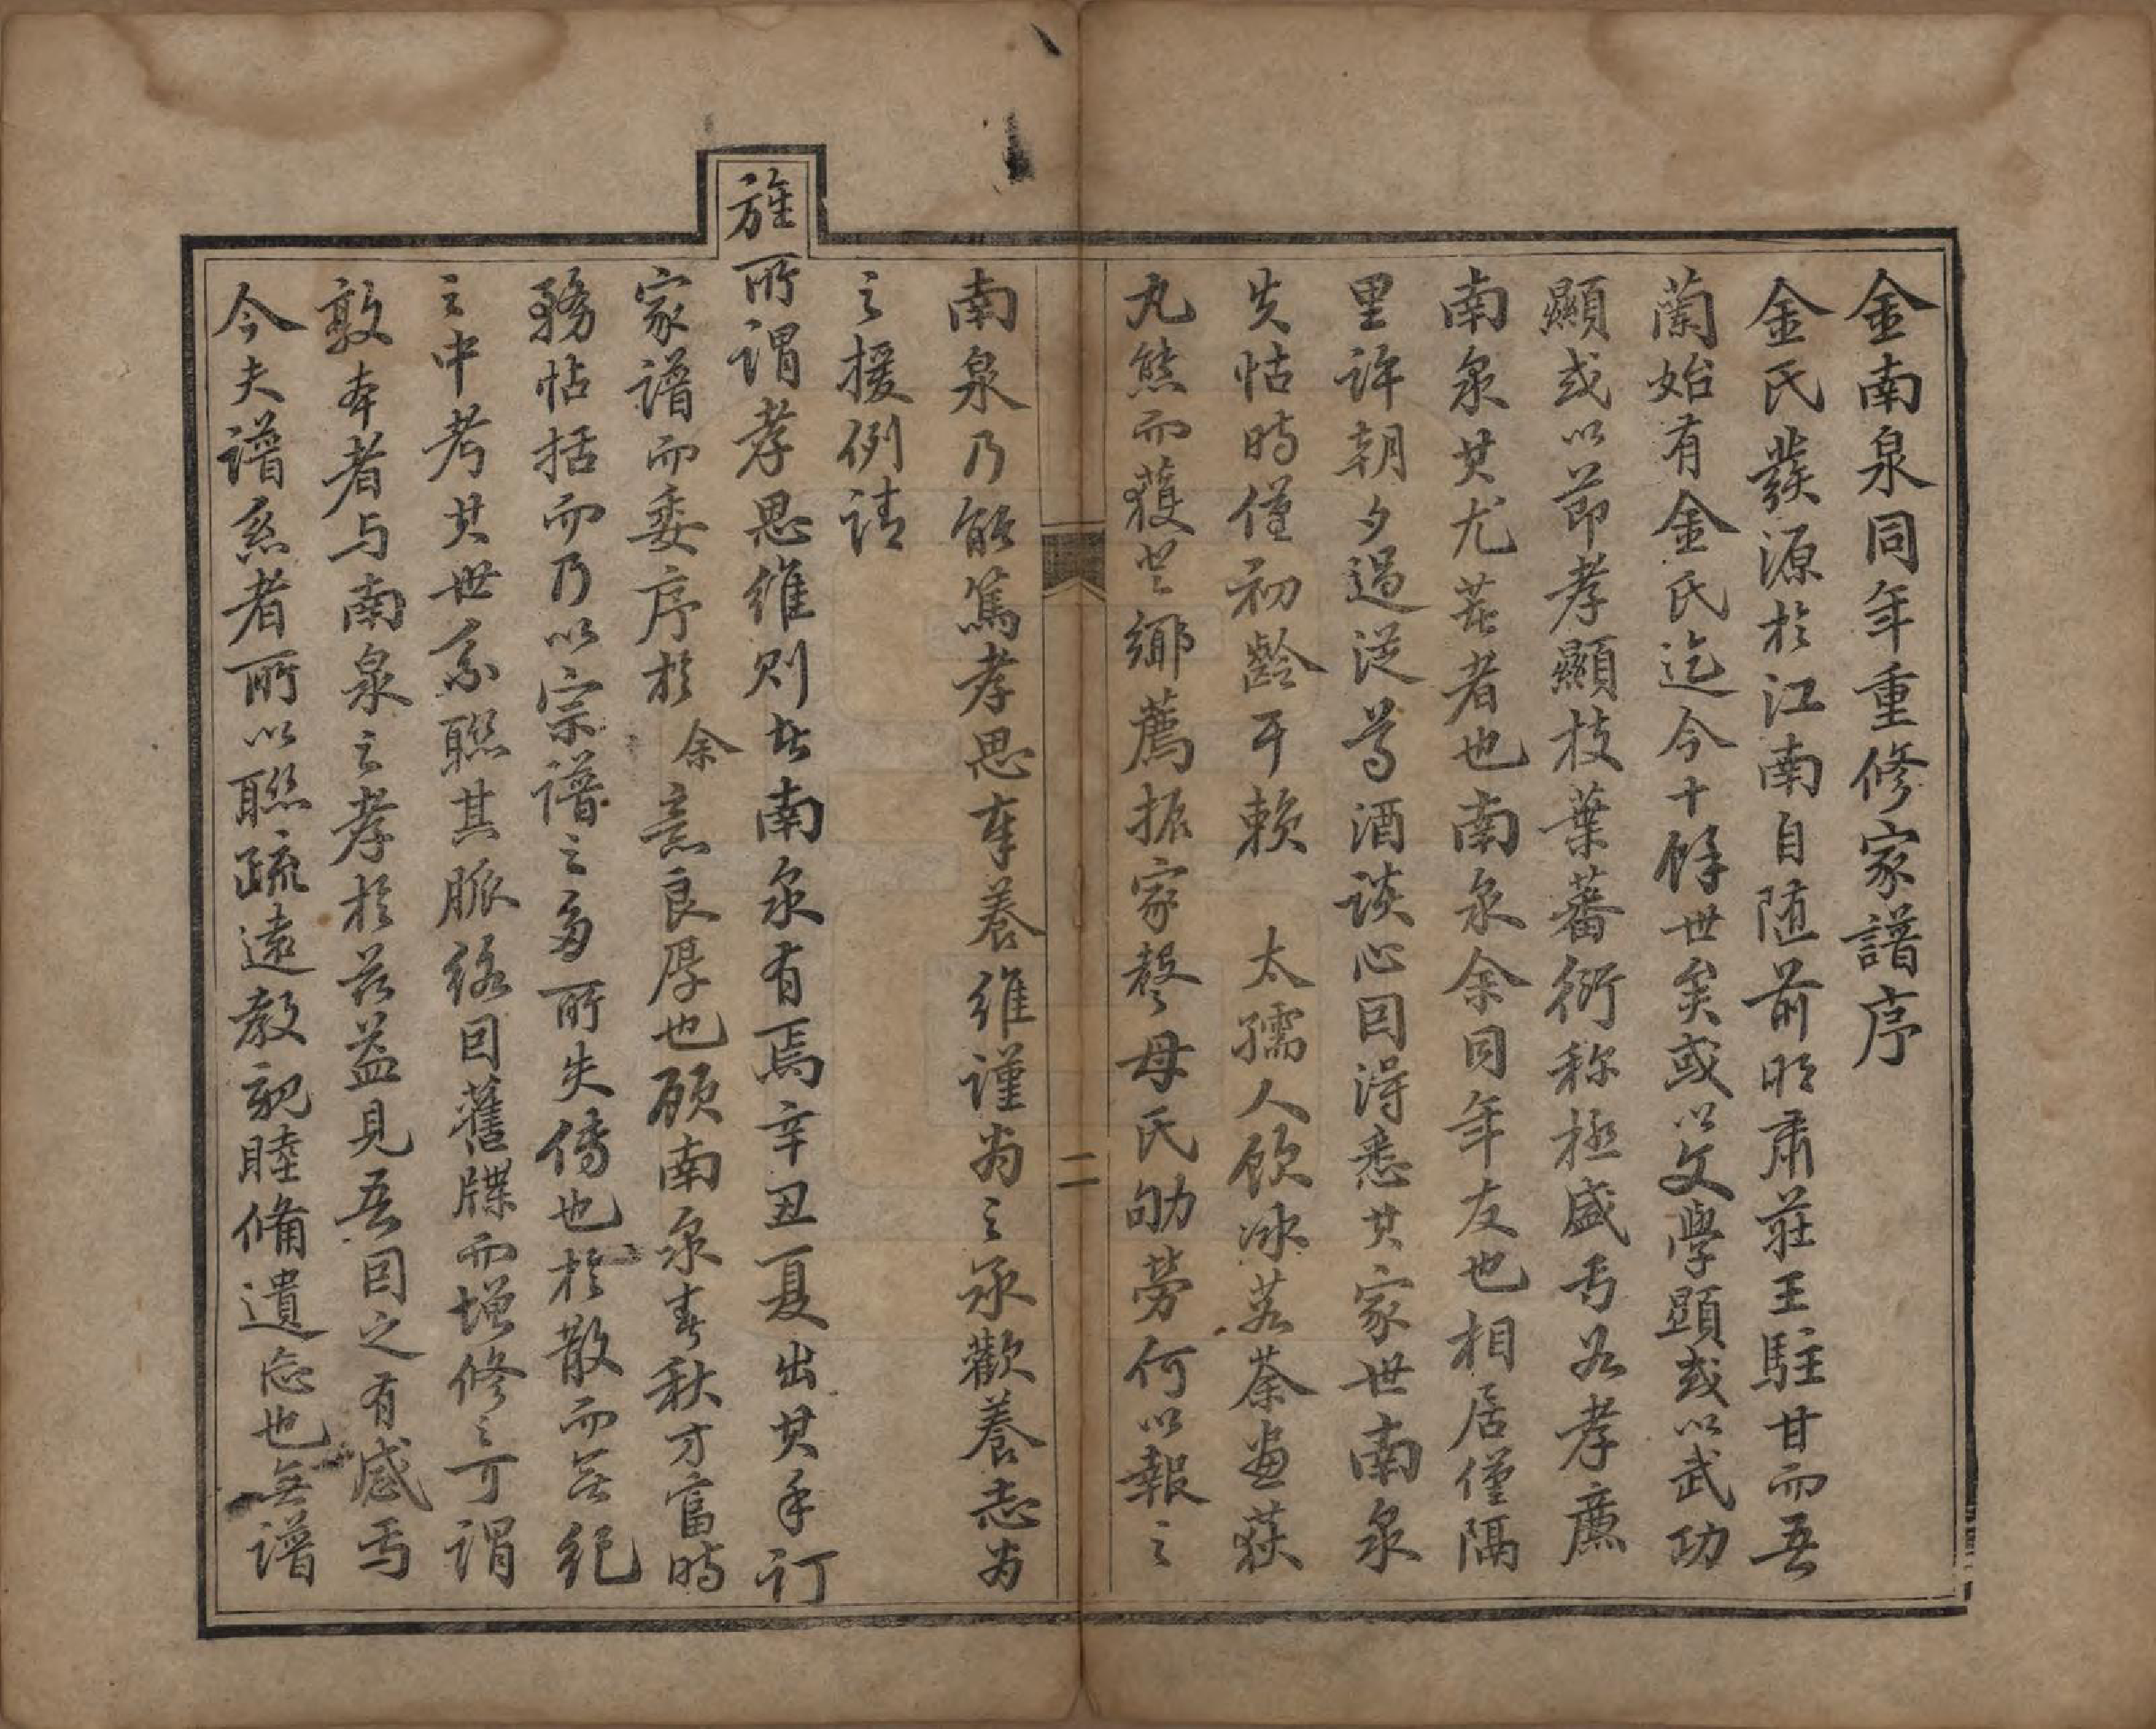 金南泉同年重修家譜序
金氏發源於江南自隨前明肅莊王駐甘而吾
蘭始有金氏迄今十餘世矣或以文學顯或以武功
顯或以節孝顯枝葉蕃衍称極盛焉若孝廉
南泉其尤著者也南泉余同年友也相居僅隔
里許朝夕過從尊酒談心因得悉其家世南泉
失怙時僅初齡耳賴 太孺人飲冰茹荼畫荻
丸熊而獲登鄉薦振家聲母氏劬勞何以報之
二
南泉乃能篤孝思奉養維謹為之承歡養志為
之援例請
旌所謂孝思維則者南泉有焉辛丑夏出其手訂
家譜而委序於余意良厚也顧南泉春秋方富時
務帖括而乃以宗譜之多所失傳也於散而無紀
之中考其世系聯其脈絡因舊牒而增修之可謂
敦本者与南泉之孝於茲益見吾因之有感焉
今夫譜系者所以聯疏遠敦親睦備遺忘也無譜